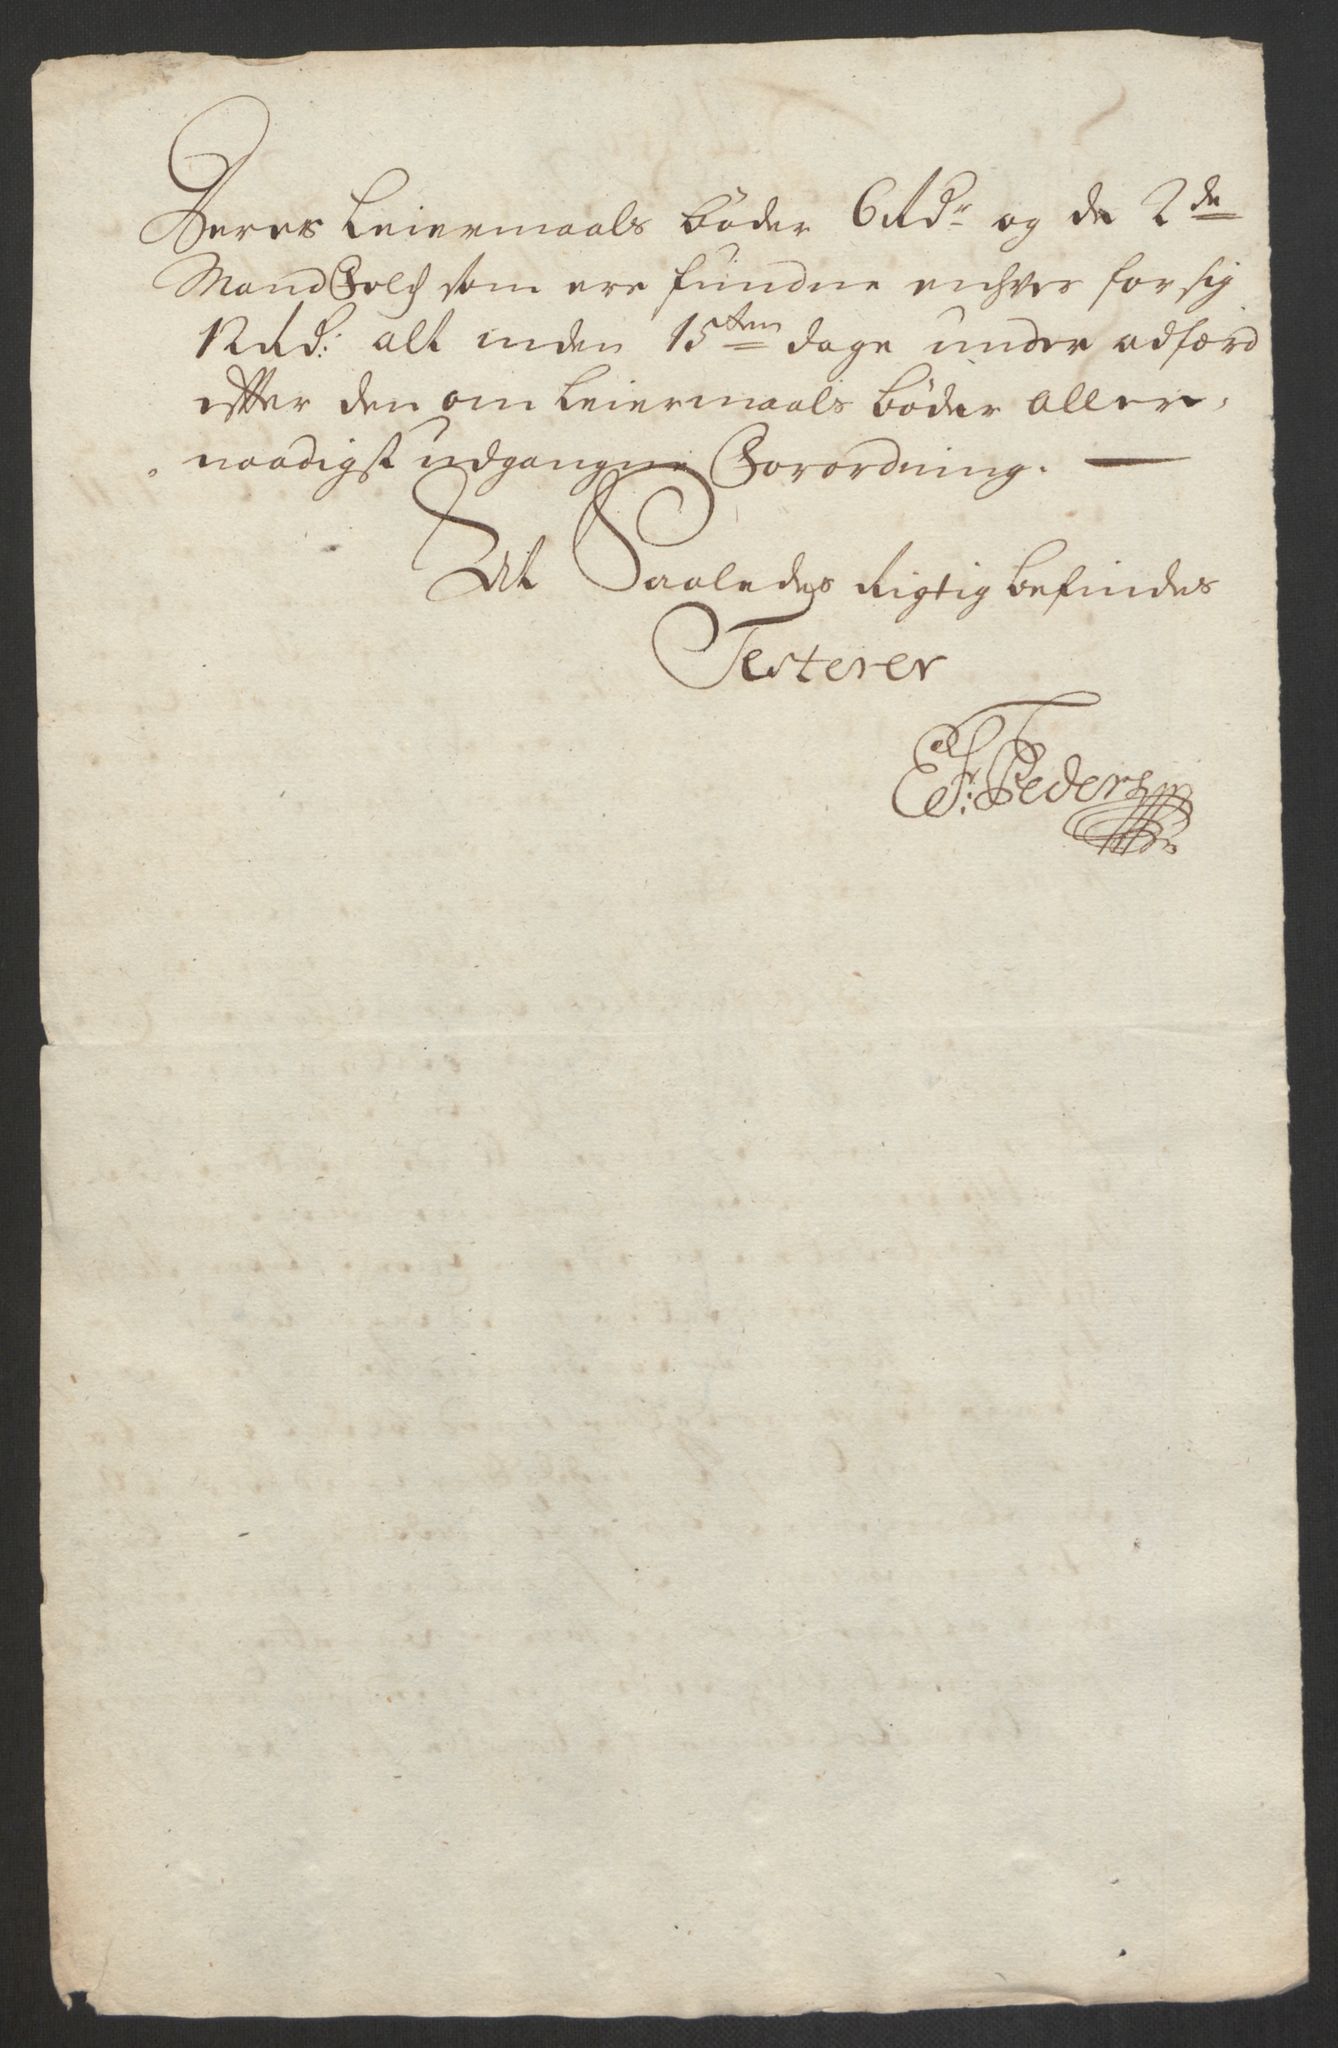 Deres Leiermaals bøder 6 Rdr og de 2de
Mand Folch som ere fundne enhver for sig
12 Rd: alt inden 15ten dage under adfærd
efter den om Leiermaals bøder aller,
naadigst udgangne Forordning. —
At Saaledes Rigtig befindes
Testerer
E Fr: Pedersen